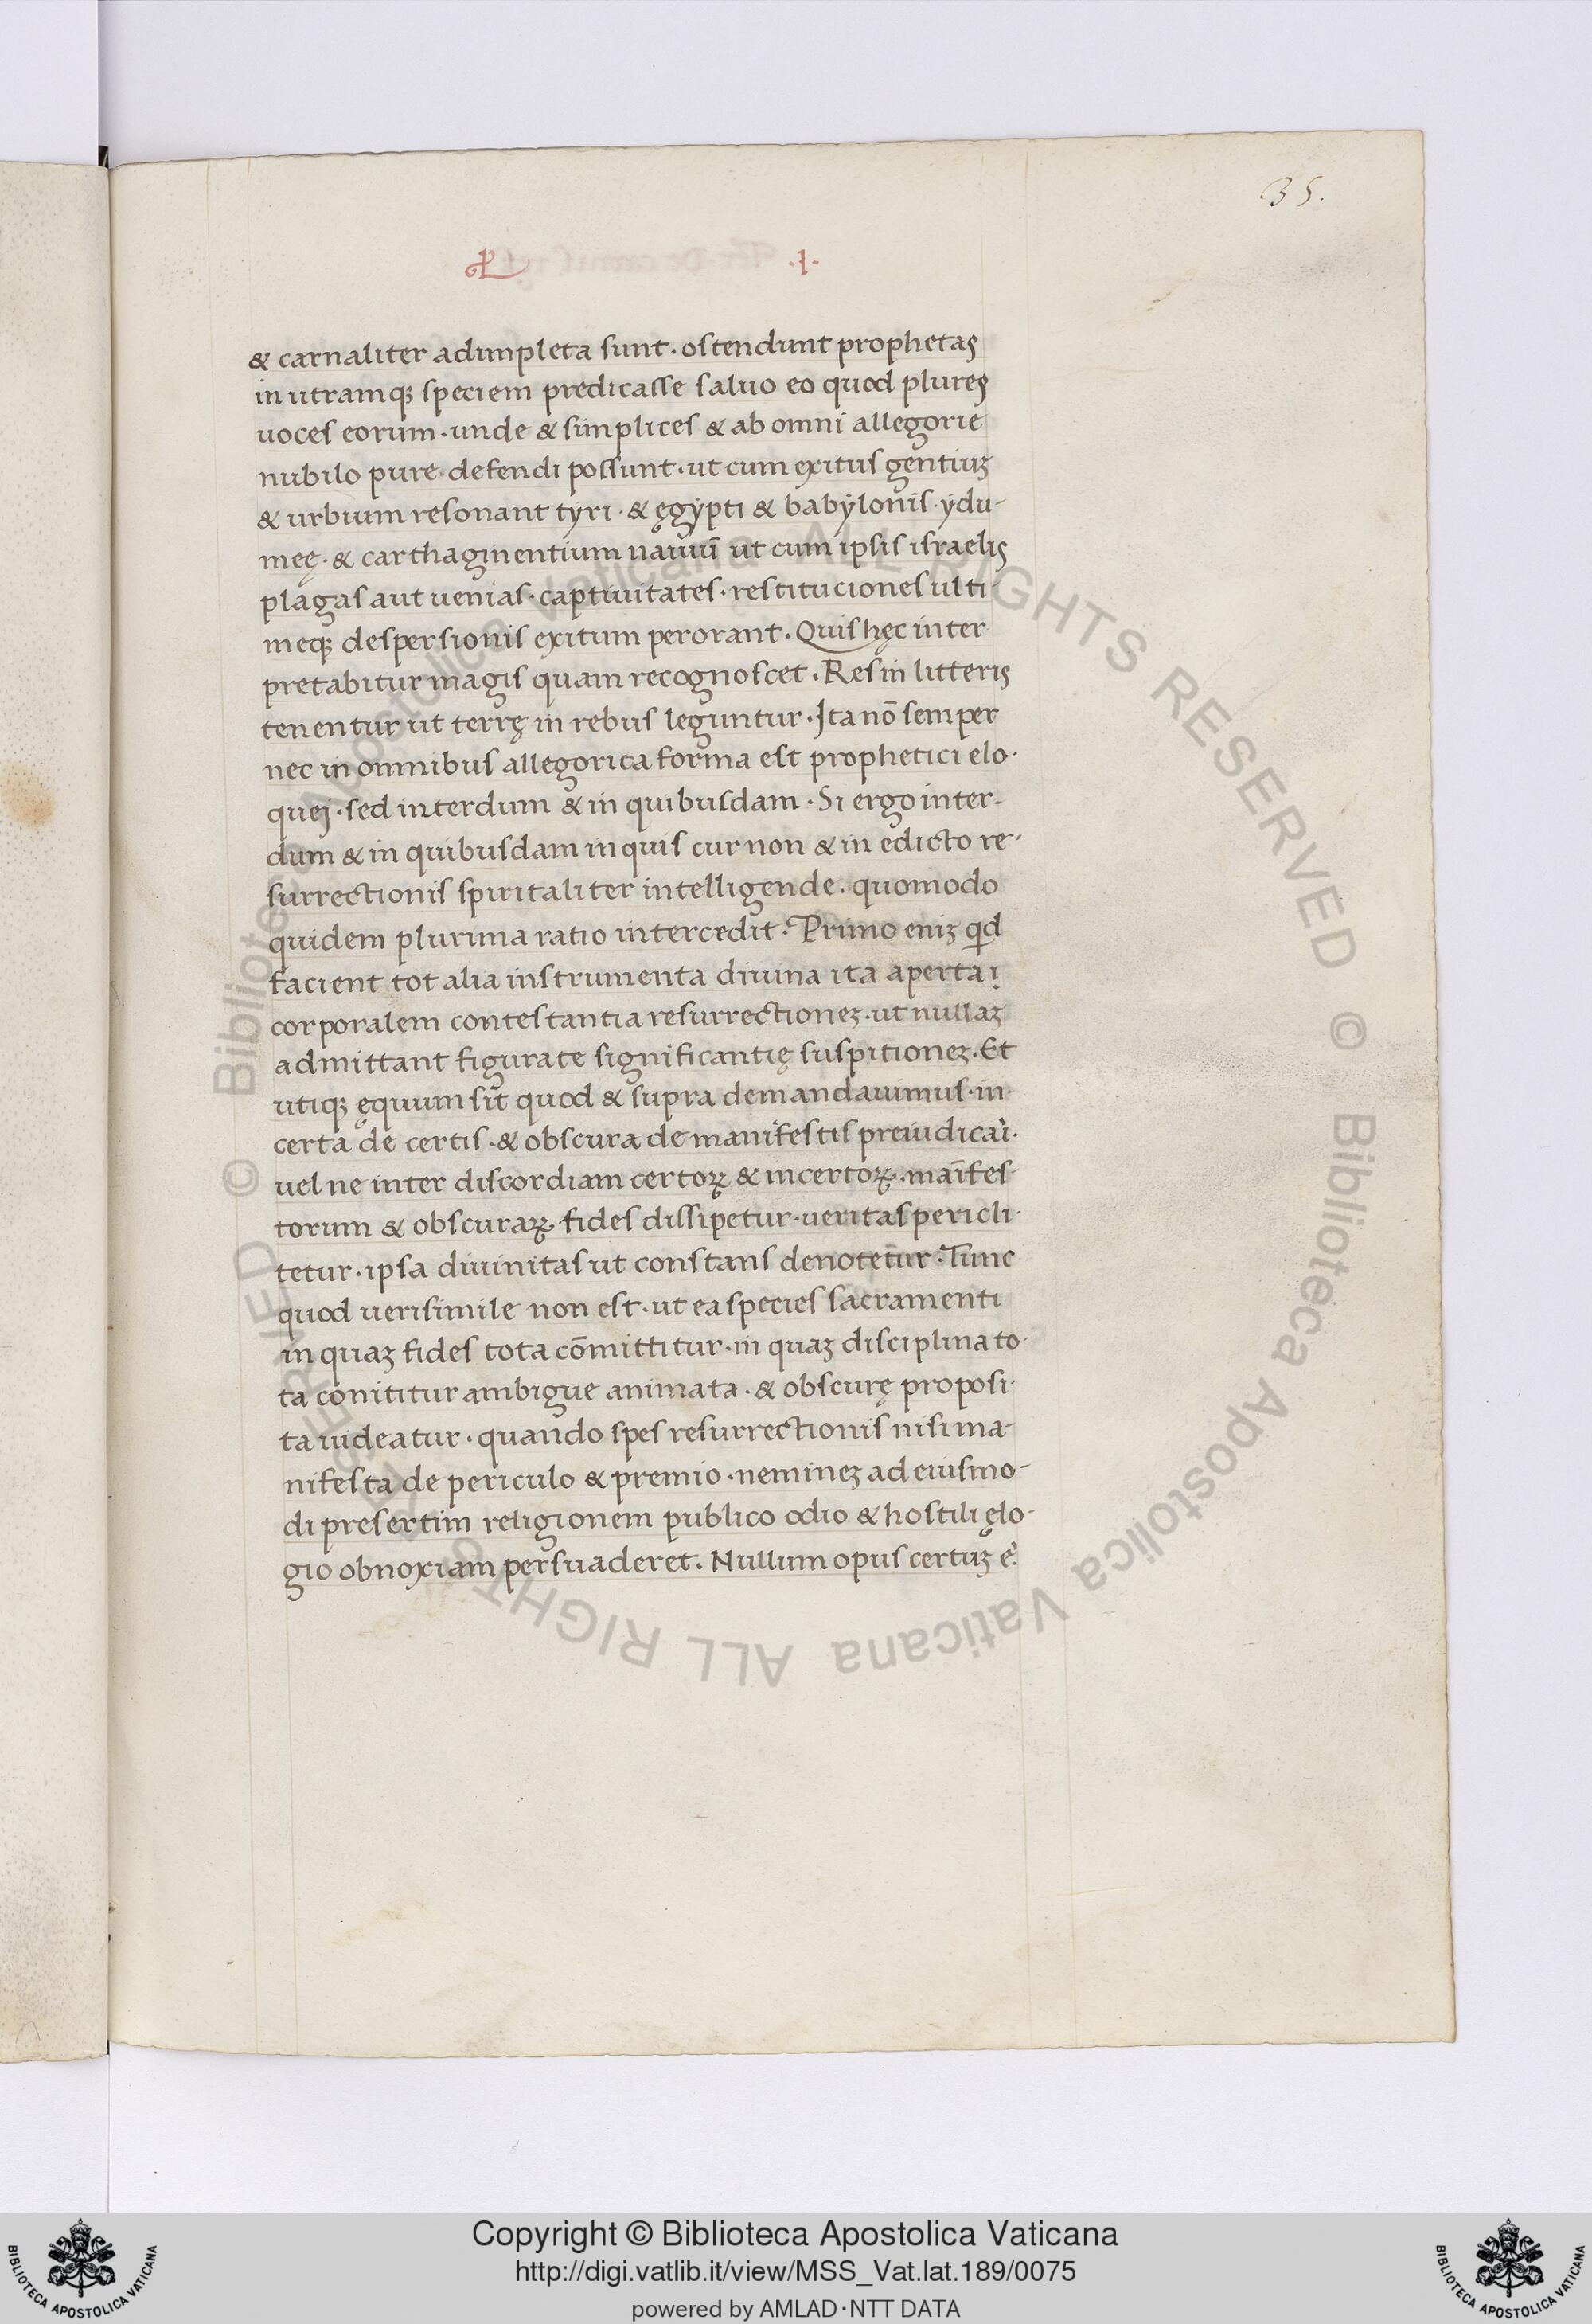 35.
.I.
& carnaliter adimpleta sunt · ostendunt prophetas
in utramq; speciem predicasse saluo eo quod plures
uoces eorum · unde & simplices & ab omni allegorie
nubilo pure · defendi possunt · ut cum exitus gentiuꝫ
& urbium resonant tyri · & ęgÿpti & babÿlonis · ÿdu-
meę · & carthaginentium nauiū ut cum ipsis israelis
plagas aut uenias · captiuitates · restituciones ulti-
meq; despersionis exitum perorant . Quis hęc inter
pretabitur magis quam recognoscet . Res in litteris
tenentur ut terrę in rebus leguntur · Ita nō semper
nec in omnibus allegorica forma est prophetici elo-
quej · sed interdum & in quibusdam · Si ergo inter-
dum & in quibusdam inquis cur non & in edicto re-
surrectionis spiritaliter intelligende . quomodo
quidem plurima ratio intercedit . Primo eniꝫ qd
facient tot alia instrumenta diuina ita aperta ı
corporalem contestantia resurrectioneꝫ · ut nullaꝫ
admittant figurate significantię suspitioneꝫ . Et
utiq; ęquum sit quod & supra demandauimus · in-
certa de certis · & obscura de manifestis preiudicaī ·
uel ne inter discordiam certoꝝ & incertoꝝ · māifes-
torum & obscuraꝝ fides dissipetur · ueritas pericli-
tetur · ipsa diuinitas ut constans denotetur · Tunc
quod uerisimile non est · ut ea species sacramenti
in quaꝫ fides tota cōmittitur · in quaꝫ disciplina to-
ta conititur ambigue animata · & obscurę proposi-
ta uideatur · quando spes resurrectionis nisi ma-
nifesta de periculo & premio · nemineꝫ ad eiusmo-
di presertim religionem publico odio & hostili ęlo-
gio obnoxiam persuaderet . Nullum opus certuꝫ ē.
© Biblioteca Apostolica Vaticana ALL RIGHTS RESERVED © Biblioteca Apostolica Vaticana ALL RIGHTS RESERVED
Copyright © Biblioteca Apostolica Vaticana
http://digi.vatlib.it/view/MSS_Vat.lat.189/0075
powered by AMLAD·NTT DATA
BIBLIOTECA APOSTOLICA VATICANA
BIBLIOTECA APOSTOLICA VATICANA